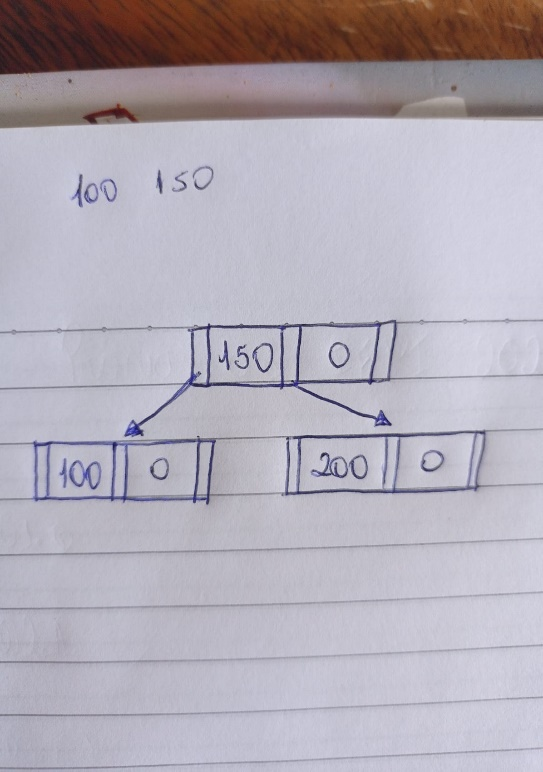 100 150
150 0
100 0 200 0